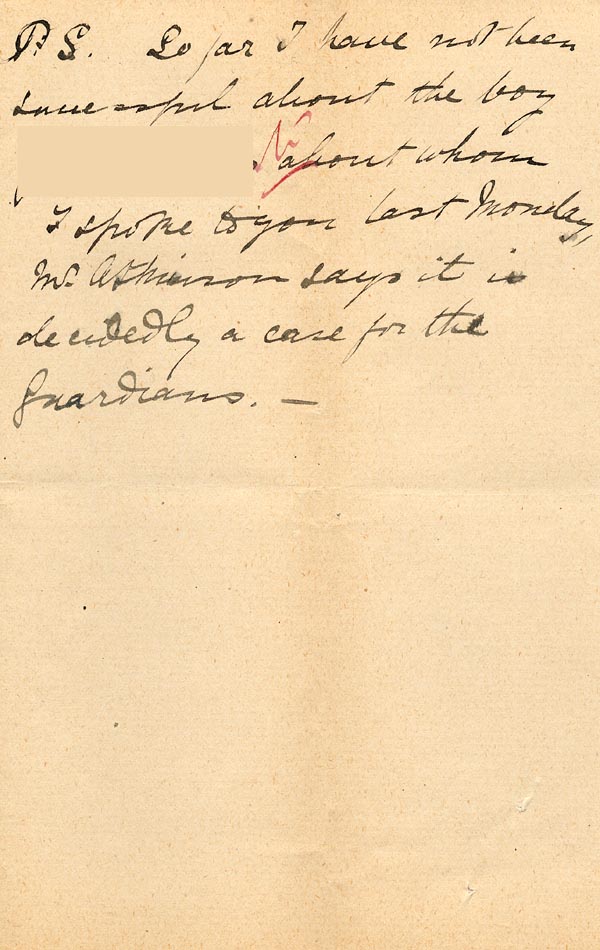 P.S. So far I have not been
successful about the boy
about whom
I spoke to you last Monday,
Mr. Atkinson says it is
decidedly a case for the
Guardians. —